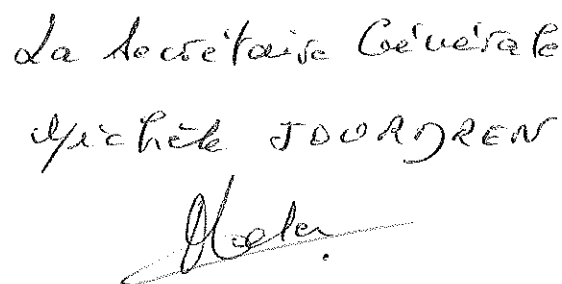 La Secrétaire Générale
Michèle JOURDREN